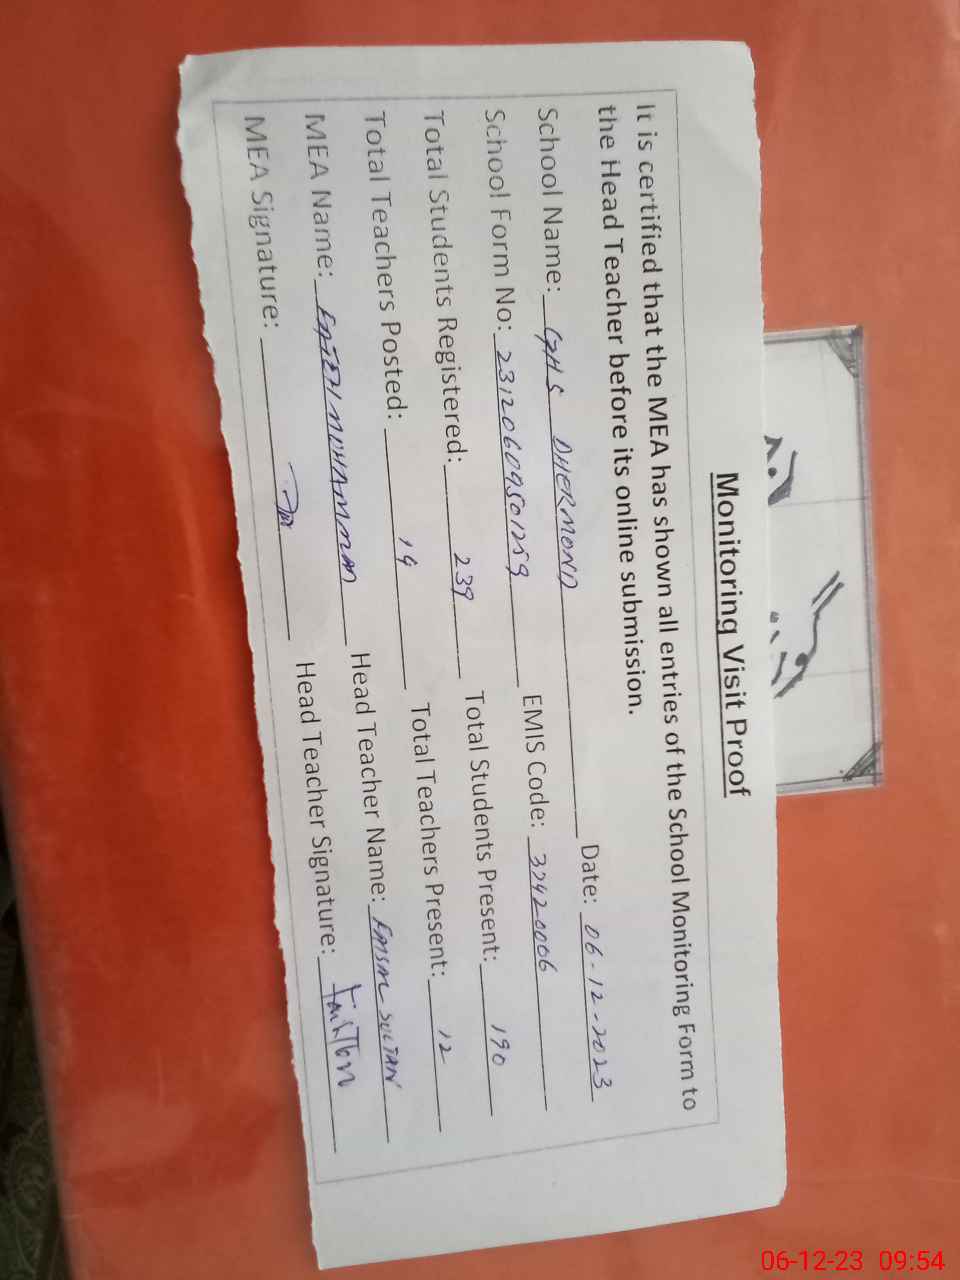 Monitoring Visit Proof
It is certified that the MEA has shown all entries of the School Monitoring Form to
the Head Teacher before its online submission.
School Name: GHS DHERMOND Date: 06-12-2023
School Form No: 23120609501259 EMIS Code: 37420006
Total Students Registered: 239 Total Students Present: 190
Total Teachers Posted: 14 Total Teachers Present: 12
MEA Name: MUHAMMAD Head Teacher Name: SULTAN
MEA Signature: Head Teacher Signature:
06-12-23 09:54